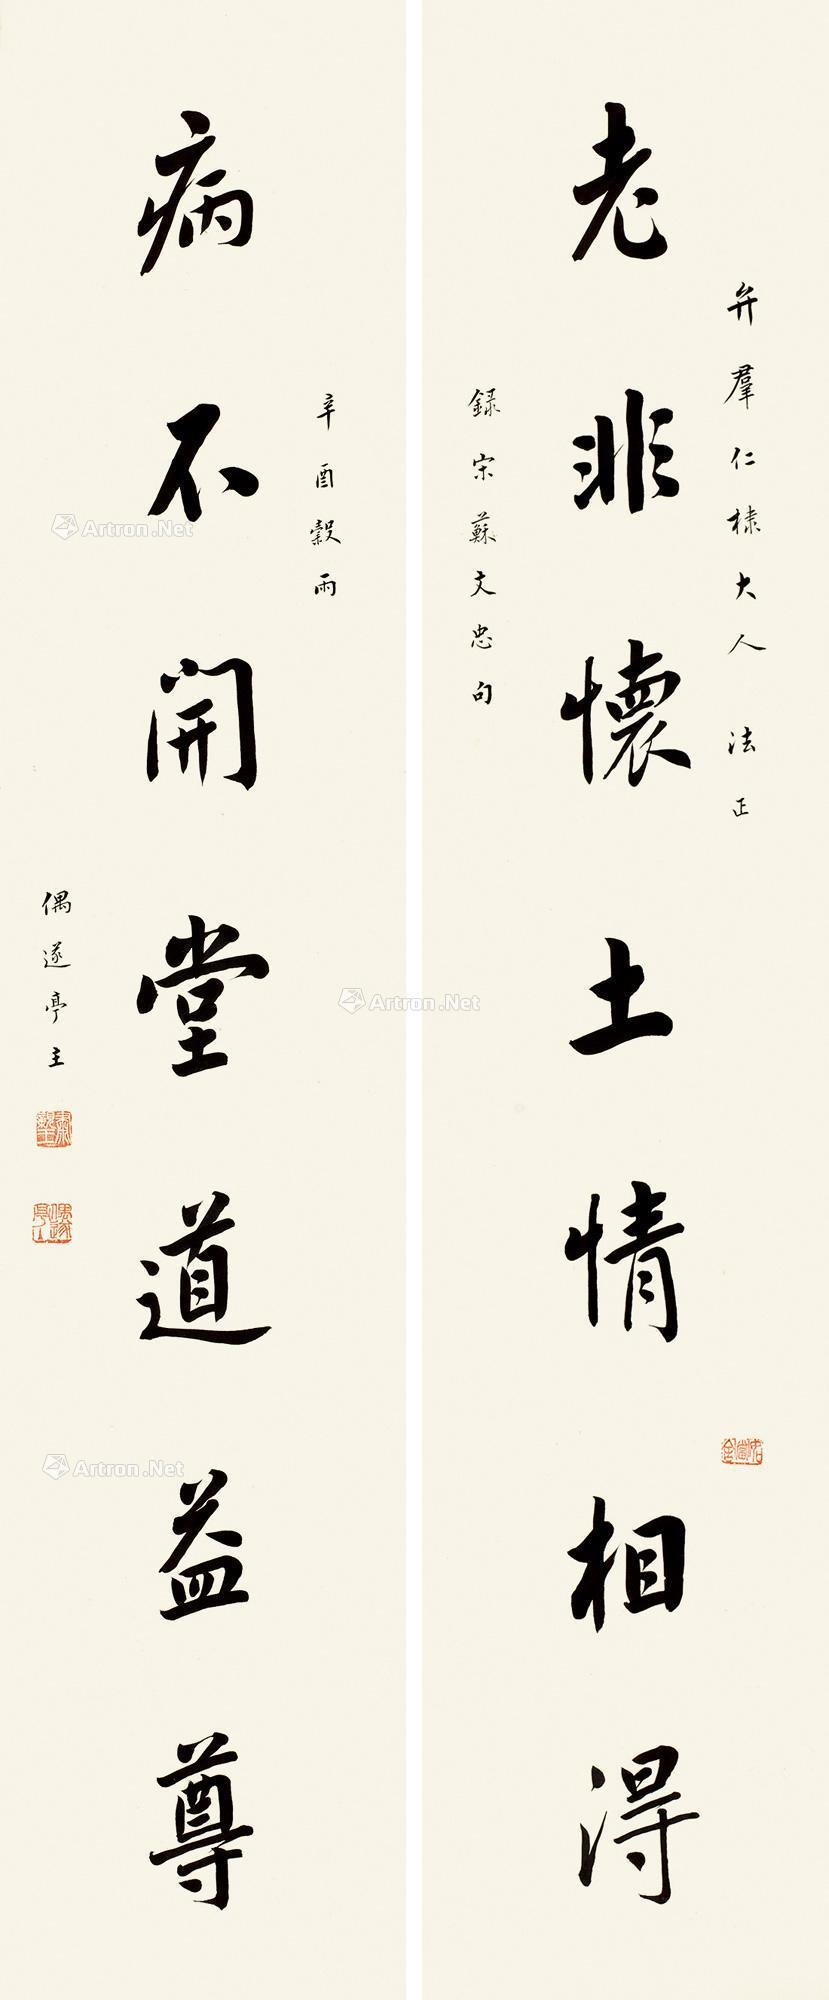 弁羣仁棣大人 法正
老非懷土情相得
録宋蘇文忠句
辛酉穀雨
病不開堂道益尊
偶遂亭主
Artron.Net
Artron.Net
Artron.Net